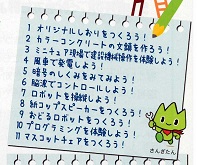 1 オリジナルしおりをつくろう！
2 カラーコンクリートの文鎮を作ろう！
3 ミニチュア現場で建設機械操作を体験しよう！
4 風車で発電しよう！
5 暗号のしくみをみてみよう！
6 脳波でコントロールしよう！
7 ロボットを操縦しよう！
8 紙コップスピーカーをつくろう！
9 おどるロボットをつくろう！
10 プログラミングを体験しよう！
11 マスコットチェアをつくろう！
さんぎたん